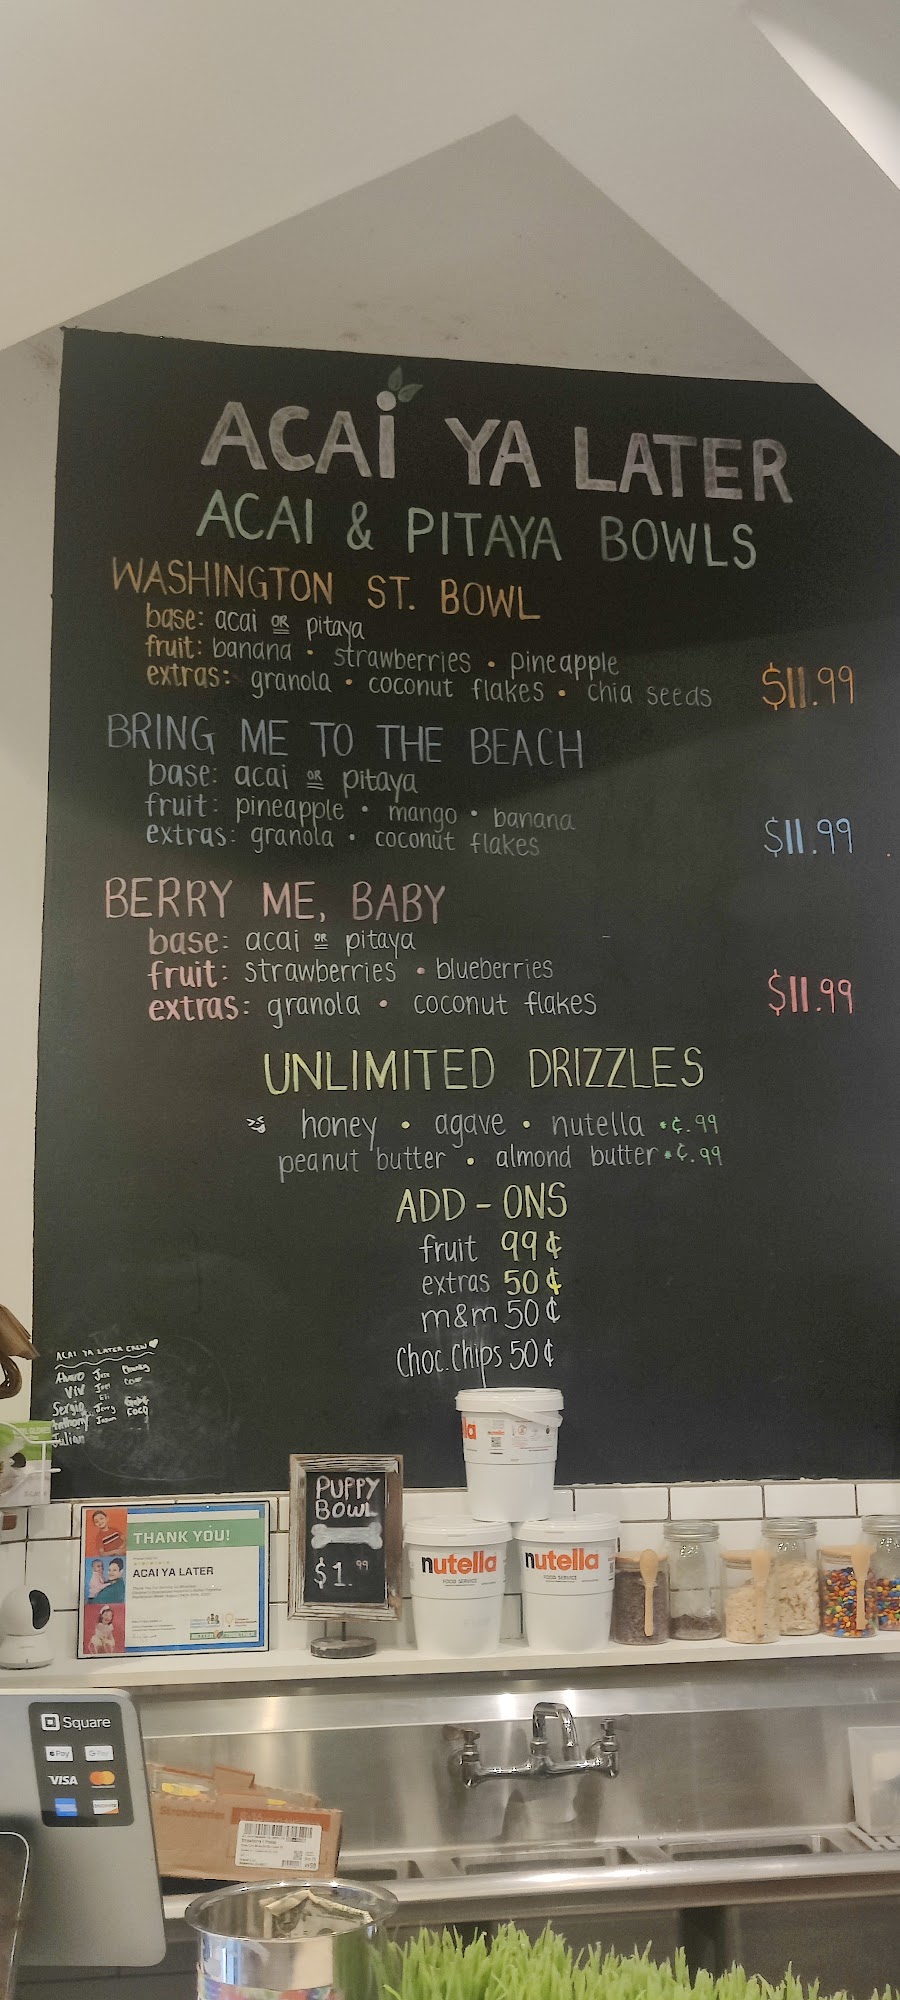 ACAI YA LATER
ACAI & PITAYA BOWLS
WASHINGTON ST. BOWL
base: acai OR pitaya
fruit: banana • strawberries • pineapple
extras: granola • coconut flakes • chia seeds $11.99
BRING ME TO THE BEACH
base: acai OR pitaya
fruit: pineapple • mango • banana
extras: granola • coconut flakes $11.99
BERRY ME, BABY
base: acai OR pitaya
fruit: strawberries • blueberries
extras: granola • coconut flakes $11.99
UNLIMITED DRIZZLES
honey • agave • nutella •¢.99
peanut butter • almond butter •¢.99
ADD-ONS
fruit 99¢
extras 50¢
m&m 50¢
Choc.Chips 50¢
ACAI YA LATER CREW
Alvaro Jose
Viv Joel
Sergio Eli
Anthony Jerry
Julian Jason
PUPPY
BOWL
$1.99
THANK YOU!
ACAI YA LATER
nutella
FOOD SERVICE
nutella
FOOD SERVICE
Square
Pay G Pay
VISA mastercard
Strawberries